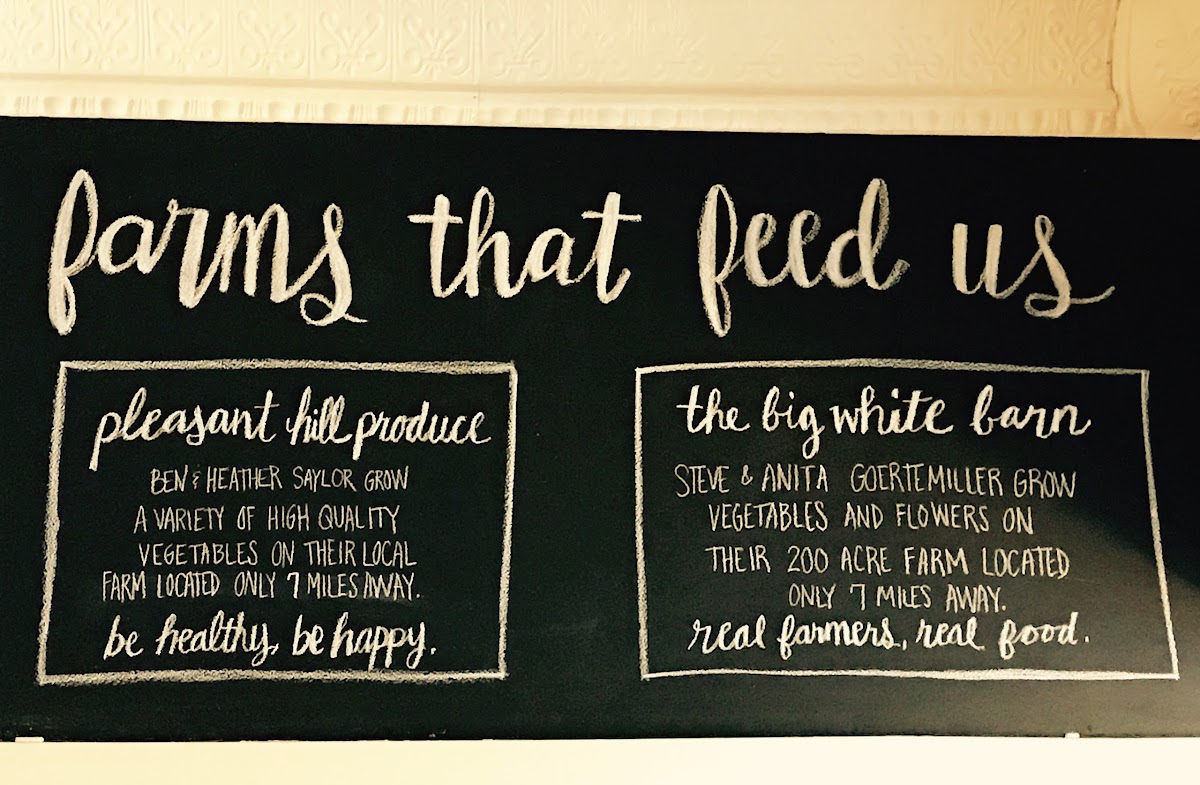 farms that feed us
pleasant hill produce
BEN & HEATHER SAYLOR GROW
A VARIETY OF HIGH QUALITY
VEGETABLES ON THEIR LOCAL
FARM LOCATED ONLY 7 MILES AWAY.
be healthy, be happy.
the big white barn
STEVE & ANITA GOERTEMILLER GROW
VEGETABLES AND FLOWERS ON
THEIR 200 ACRE FARM LOCATED
ONLY 7 MILES AWAY.
real farmers, real food.